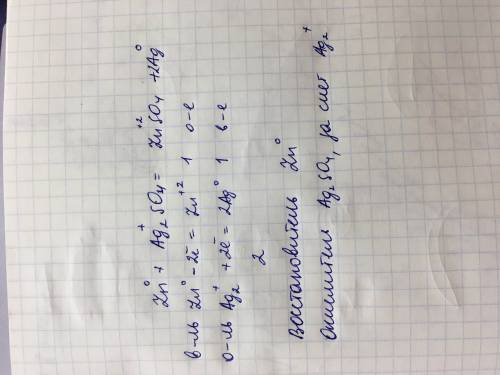 Zn⁰ + Ag₂⁺SO₄ = Zn⁺²SO₄ + 2Ag⁰
в-ль Zn⁰ - 2ē = Zn⁺² 1 о-е
о-ль Ag₂⁺ + 2ē = 2Ag⁰ 1 в-е
2
Восстановитель Zn⁰
Окислитель Ag₂SO₄, за счет Ag₂⁺